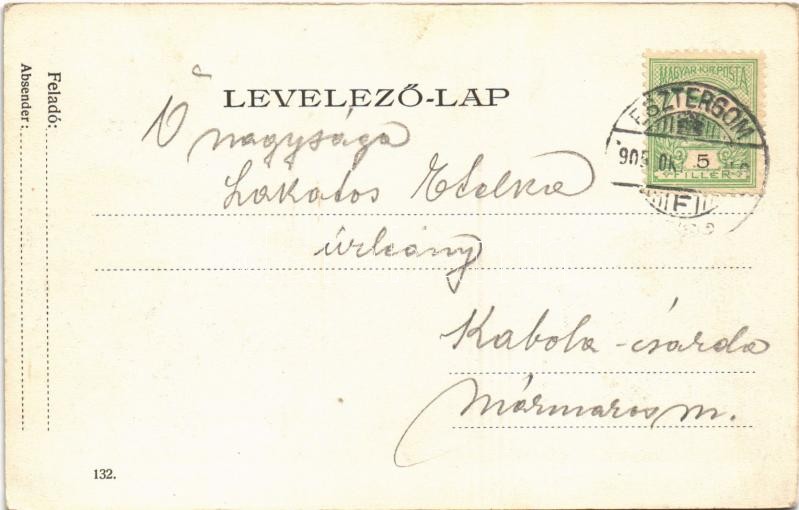 Feladó:
Absender:
LEVELEZŐ-LAP
MAGYAR·KIR·POSTA
5
FILLÉR
ESZTERGOM
905 OK
F
Ő nagysága
Lakatos Etelka
úrleány
Kabola-csárda
Mármaros m.
132.